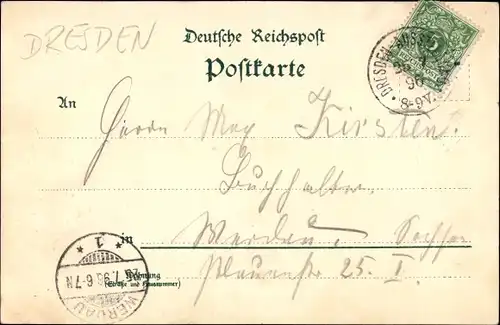 DRESDEN
Deutsche Reichspost
Postkarte
An
Herrn Max Kirsten.
Buchhalter.
in Werdau, Sachsen
Plauenstr 25. I.
Wohnung
(Straße und Hausnummer)
DRESDEN
96
8-9V.
WERDAU
1
7.96.6-7N